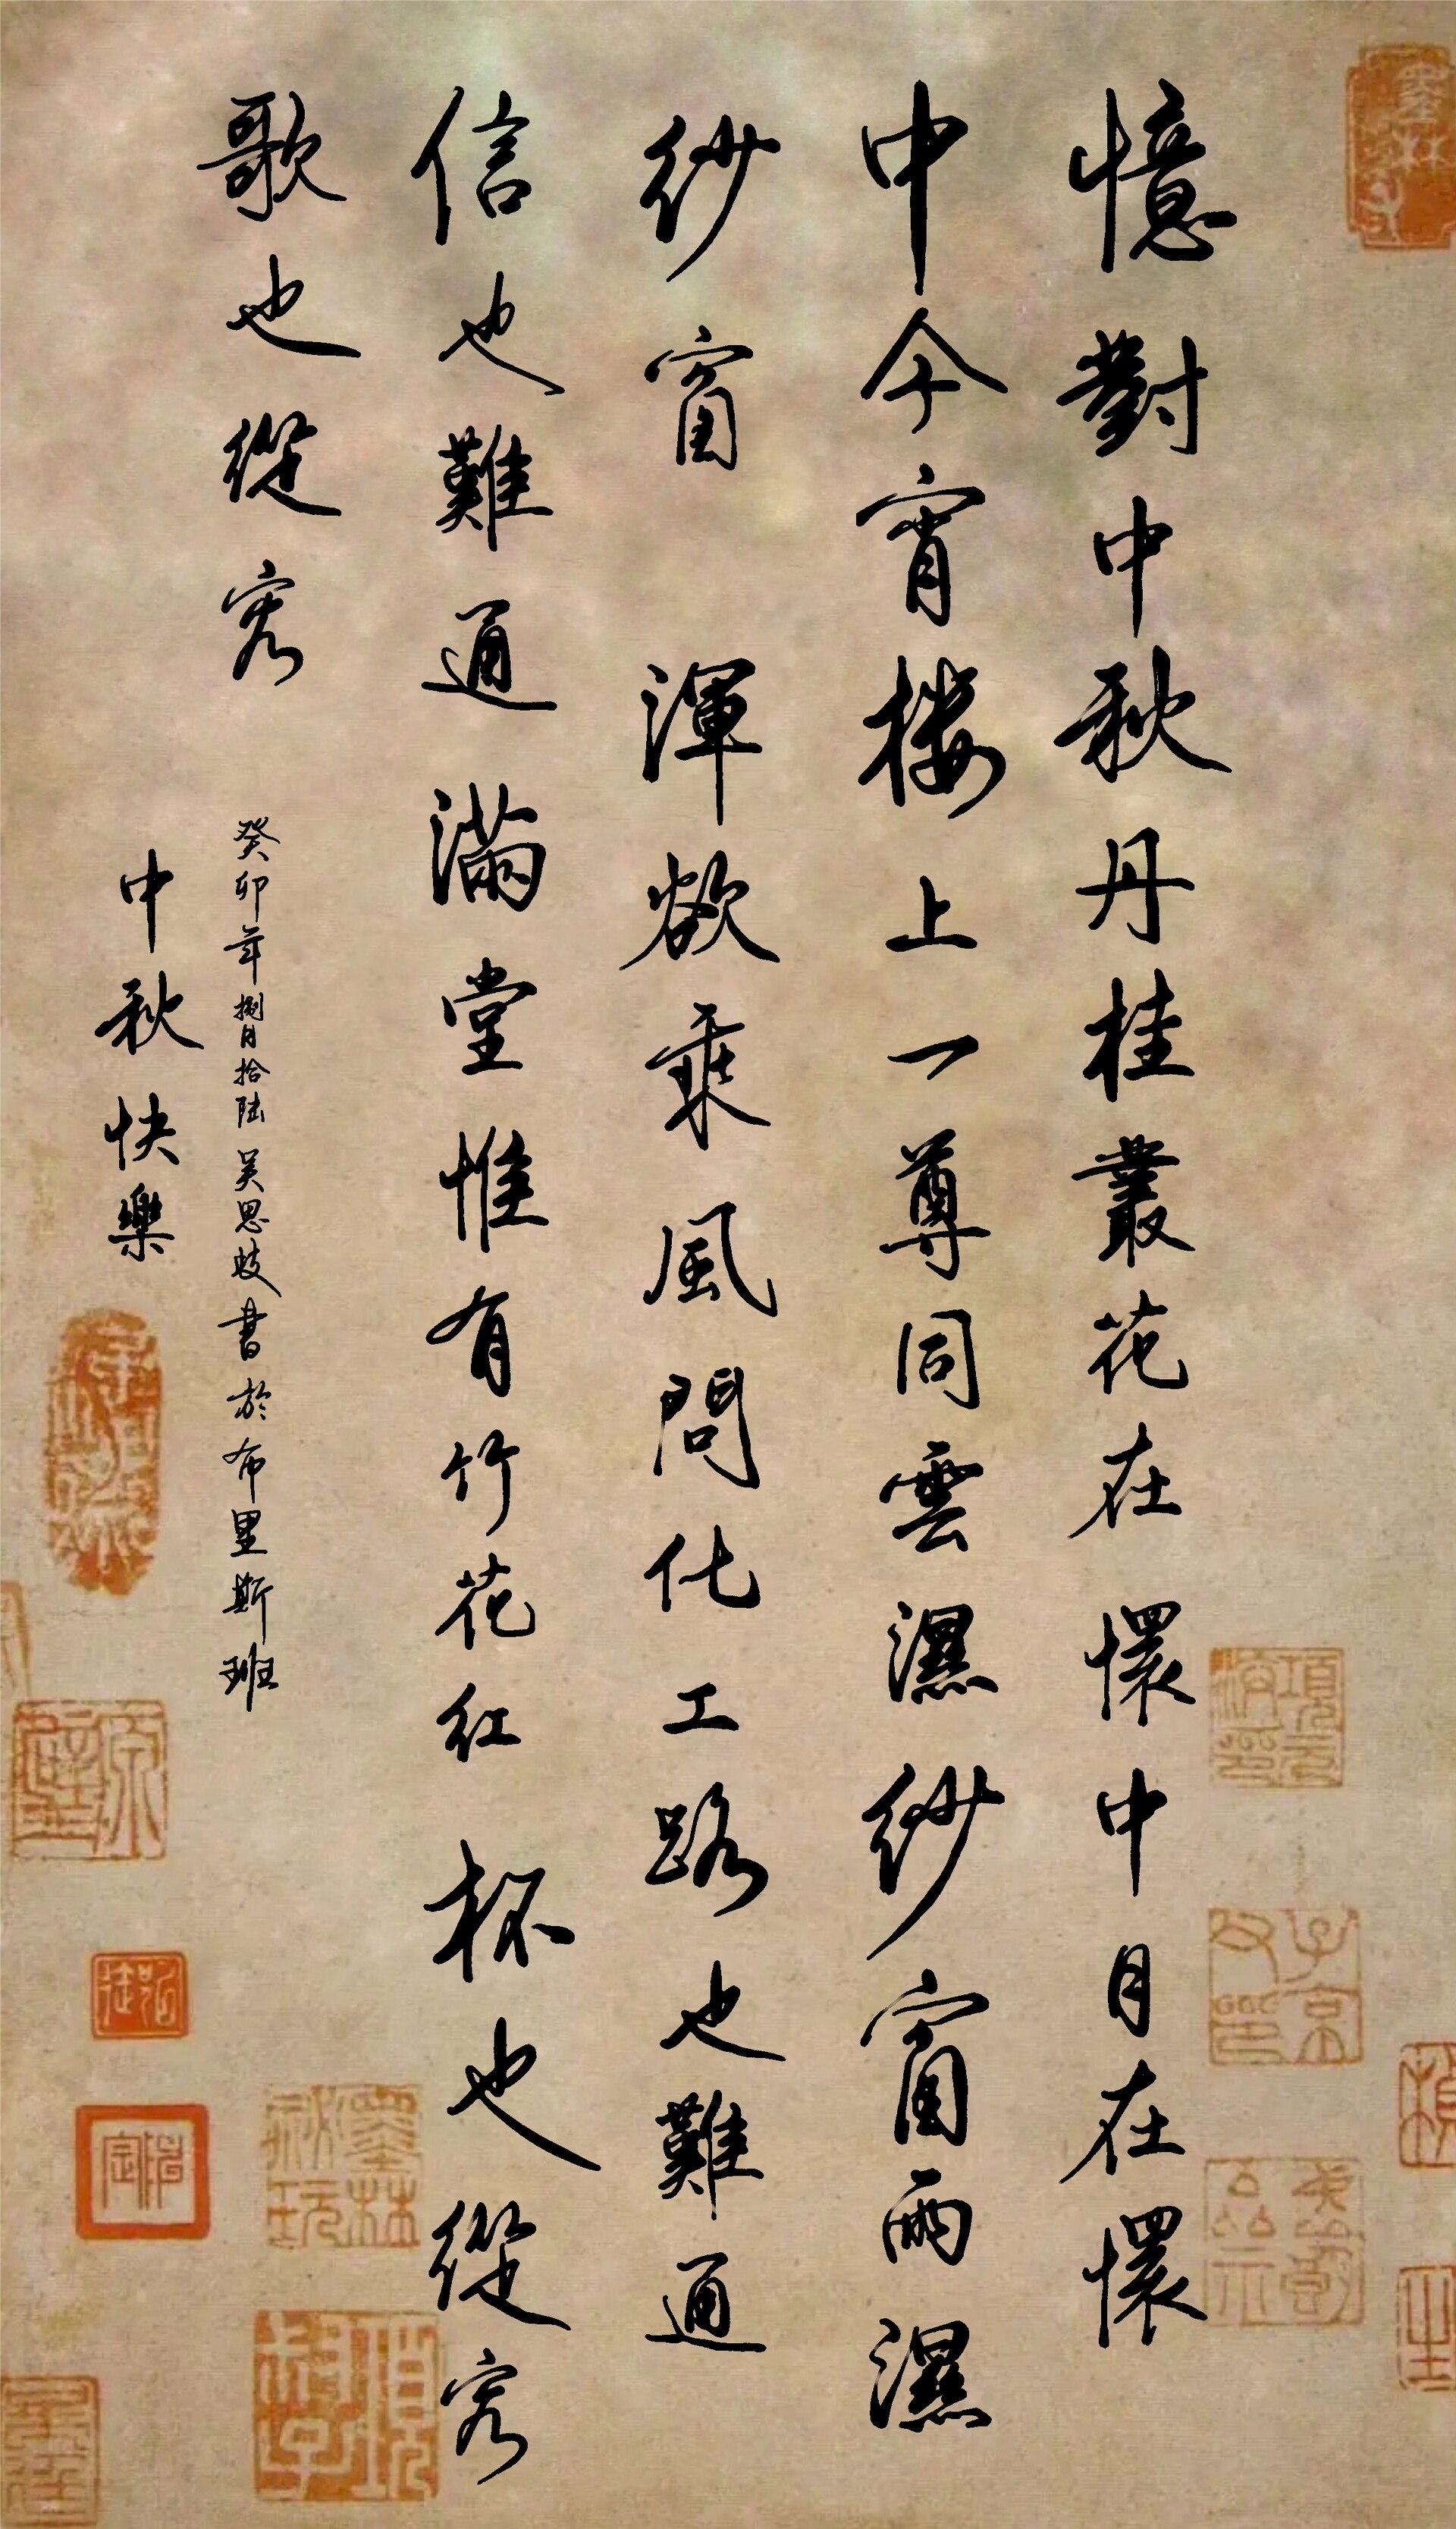 憶對中秋丹桂叢花在懷中月在懷
中今宵楼上一尊同雲濕紗窗雨濕
紗窗渾欲乘風問化工路也難通
信也難通滿堂惟有竹花紅杯也從容
歌也從容
癸卯年捌月拾陸吳思歧書於布里斯班
中秋快樂
項元汴印
子京父印
墨林秘玩